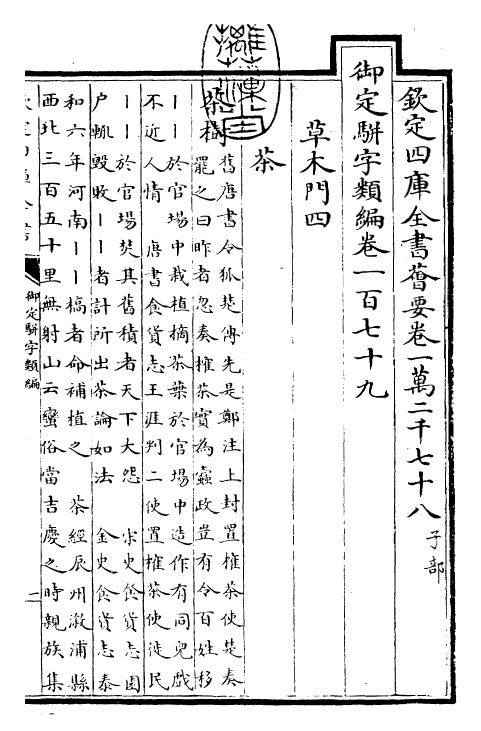 欽定四庫全書薈要卷一萬二千七十八　子部
御定駢字類編卷一百七十九
草木門四
茶
茶樹
舊唐書令狐楚傳先是鄭注上封置榷茶使楚奏
罷之曰昨者忽奏榷茶實為蠧政豈有令百姓移
丨丨於官場中栽植摘茶葉於官場中造作有同兒戲
不近人情　唐書食貨志王涯判二使置榷茶使徙民
丨丨於官場焚其舊積者天下大怨　宋史食貨志園
户輒毁敗丨丨者計所出茶論如法　金史食貨志泰
和六年河南丨丨槁者命補植之　茶經辰州溆浦縣
西北三百五十里無射山云蠻俗當吉慶之時親族集
御定駢字類編
一